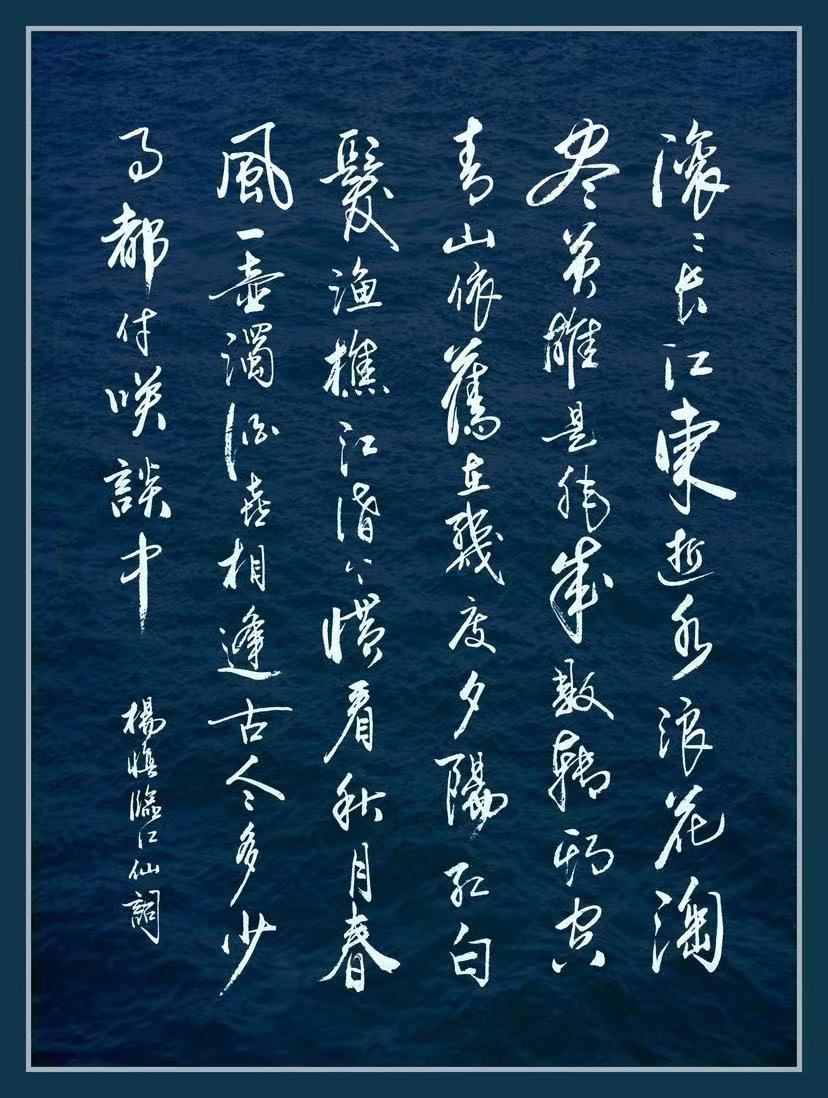 滚〻長江東逝水浪花淘
尽英雄是非成敗轉頭空
青山依舊在幾度夕陽紅白
髮漁樵江渚上慣看秋月春
風一壺濁酒喜相逢古今多少
事都付咲談中
楊慎臨江仙詞